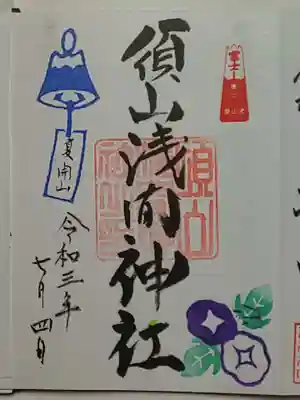 須山浅間神社
富士山
須山
夏開山
令和三年
七月四日